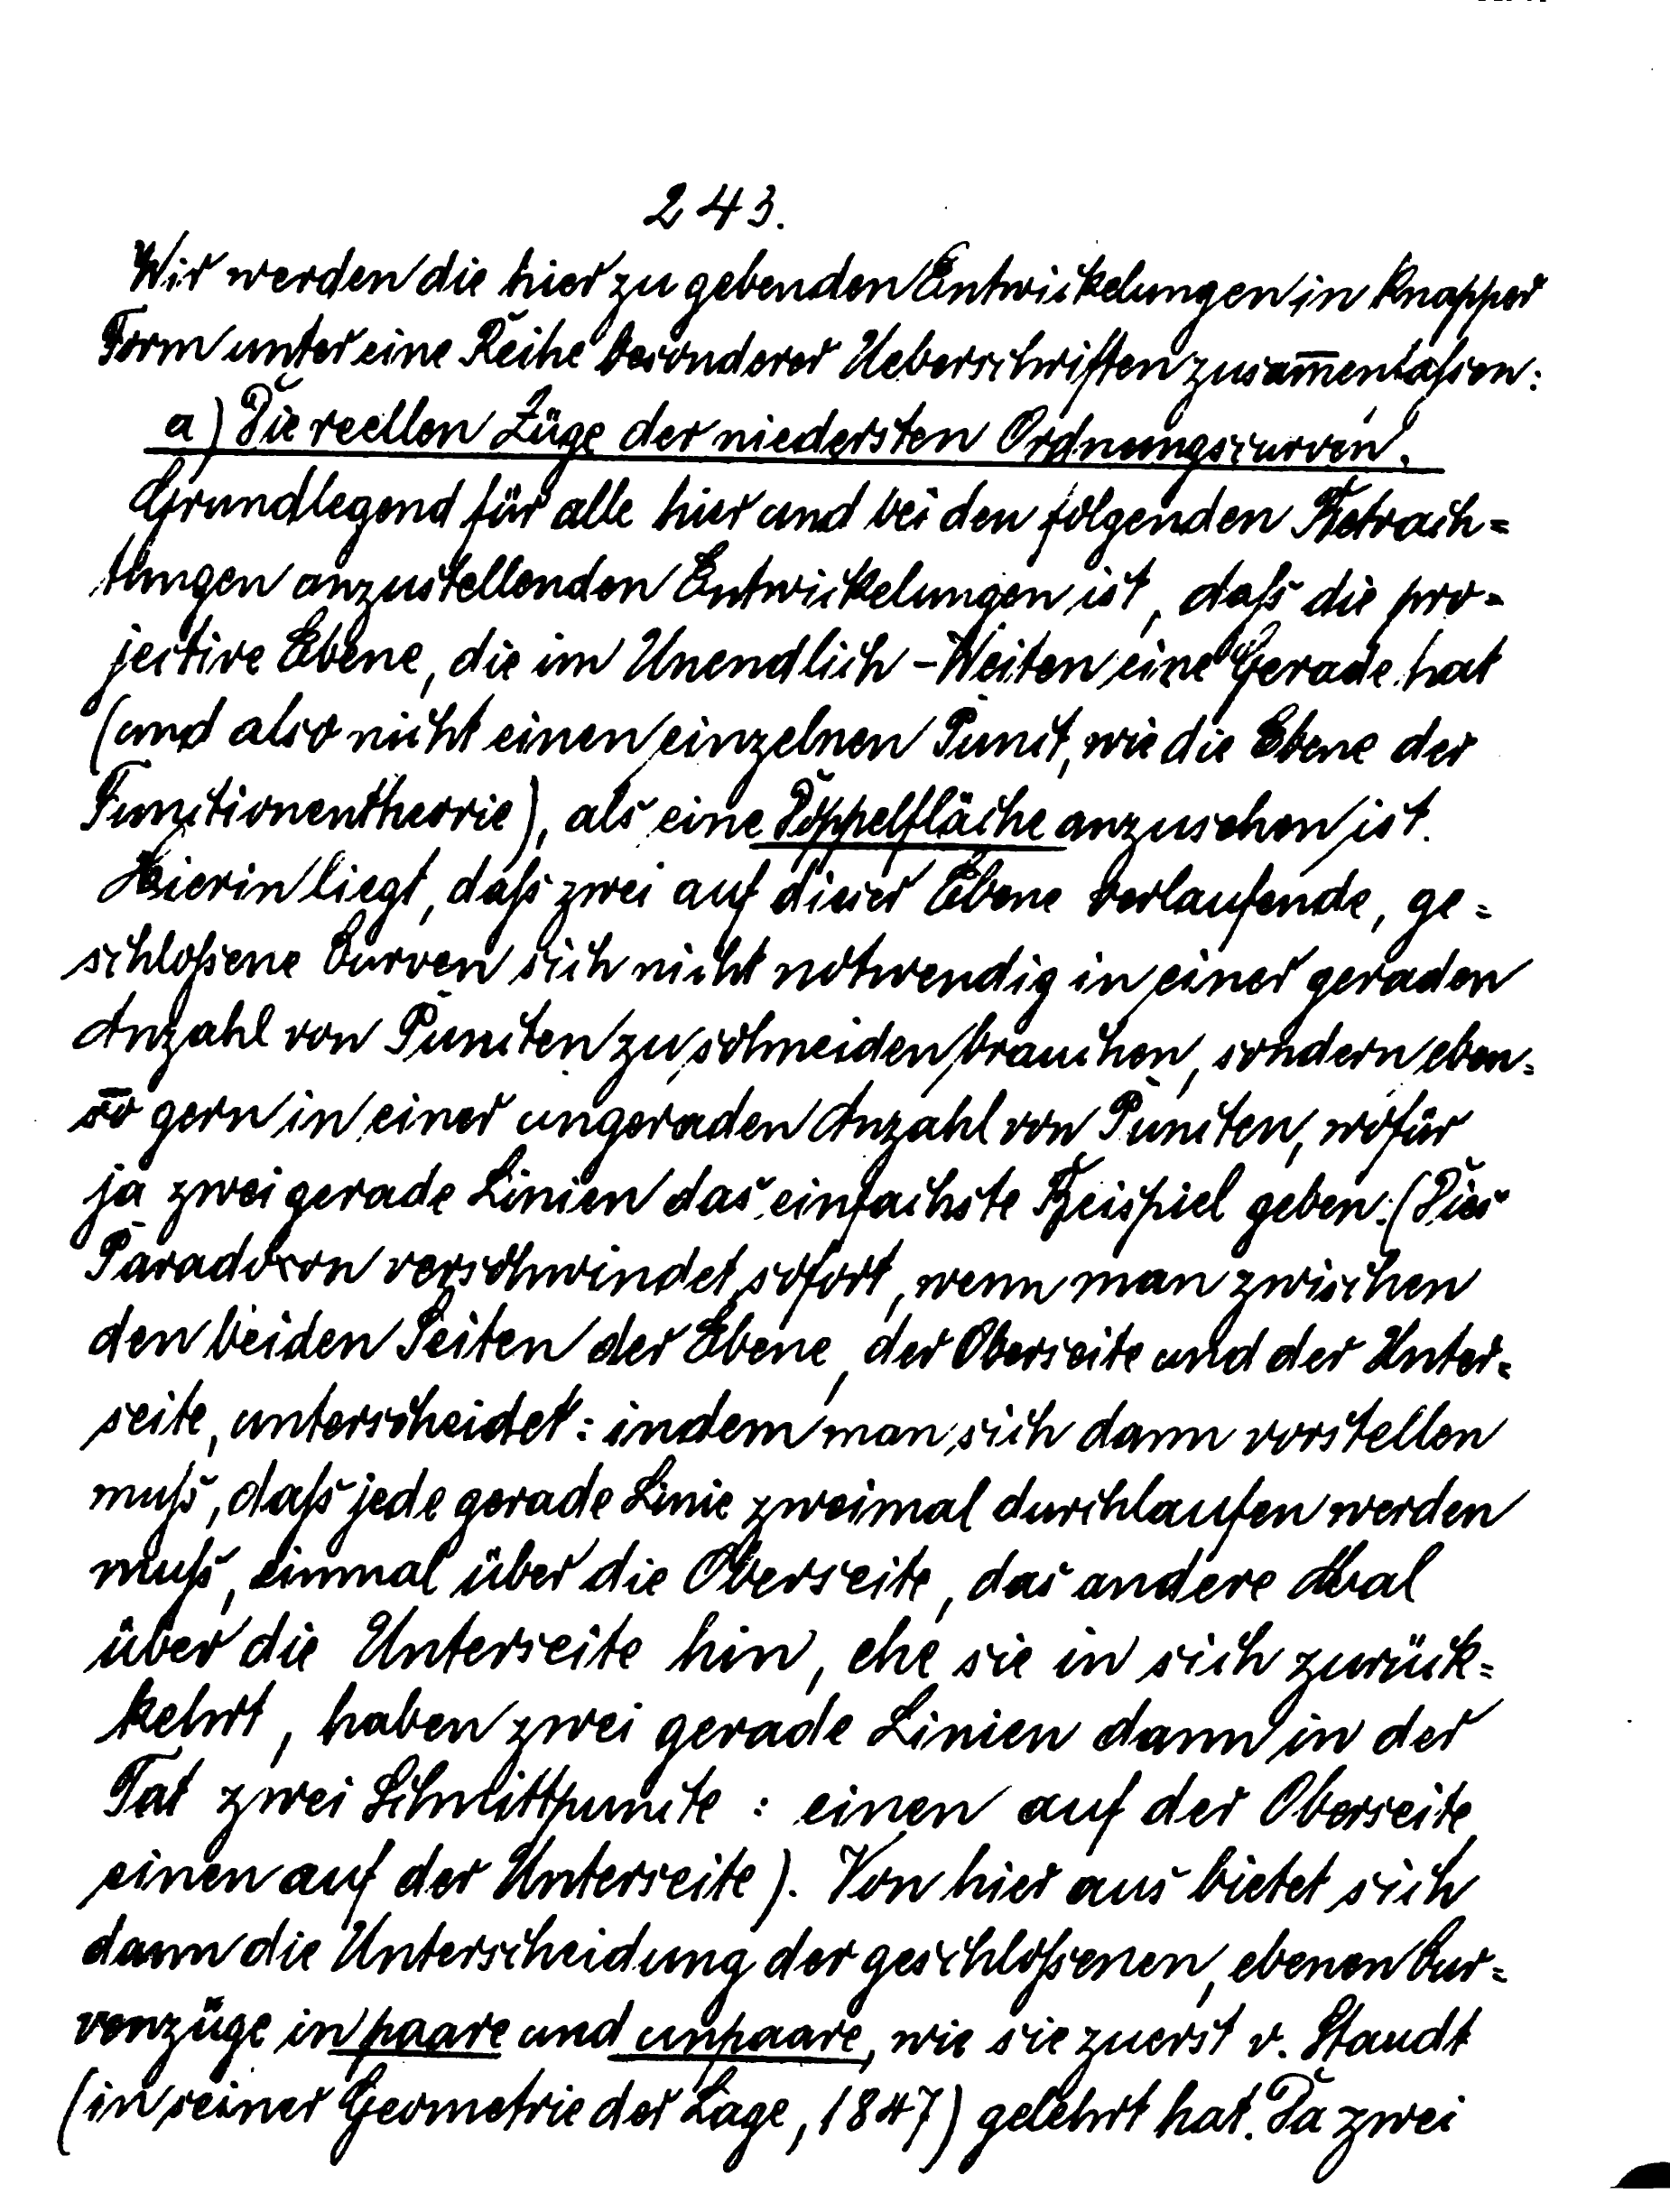 243.
Wir werden die hier zu gebenden Entwickelungen in knapper
Form unter eine Reihe besonderer Ueberschriften zusam̅enfassen:
a) Die reellen Züge der niedersten Ordnungscurven.
Grundlegend für alle hier und bei den folgenden Betrach=
tungen anzustellenden Entwickelungen ist, daß die pro=
jective Ebene, die im Unendlich-Weiten eine Gerade hat
(und also nicht einen einzelnen Punct, wie die Ebene der
Functionentheorie), als eine Doppelfläche anzusehen ist.
Hierin liegt, daß zwei auf dieser Ebene verlaufende, ge=
schloßene Curven sich nicht notwendig in einer geraden
Anzahl von Puncten zu schneiden brauchen, sondern eben=
so gern in einer ungeraden Anzahl von Puncten, wofür
ja zwei gerade Linien das einfachste Beispiel geben. (Dies
Paradoxon verschwindet sofort, wenn man zwischen
den beiden Seiten der Ebene, der Oberseite und der Unter=
seite, unterscheidet: indem man sich dann vorstellen
muß, daß jede gerade Linie zweimal durchlaufen werden
muß, einmal über die Oberseite, das andere Mal
über die Unterseite hin, ehe sie in sich zurück=
kehrt, haben zwei gerade Linien dann in der
Tat zwei Schnittpuncte: einen auf der Oberseite,
einen auf der Unterseite). Von hier aus bietet sich
dann die Unterscheidung der geschloßenen, ebenen Cur=
venzüge in paare und unpaare, wie sie zuerst v. Staudt
(in seiner Geometrie der Lage, 1847) gelehrt hat. Da zwei